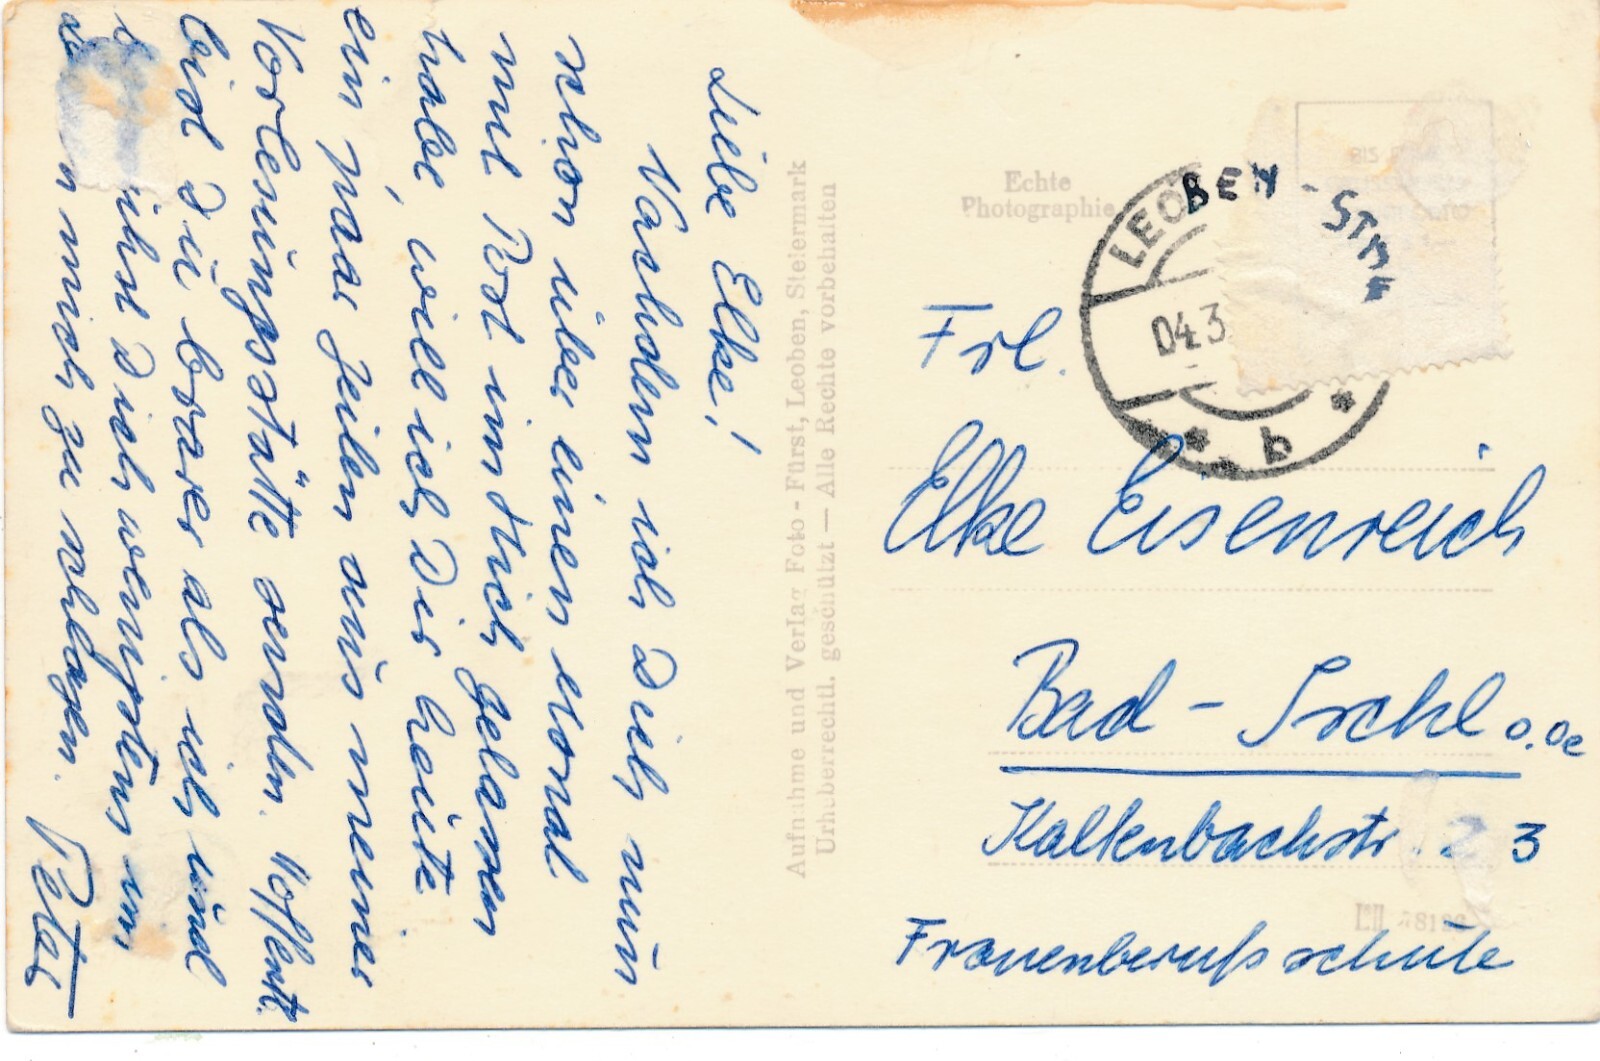 Liebe Elke!
Nachdem ich Dich nun
schon über einen Monat
mit Post im Stich gelassen
habe, will ich Dir heute
ein paar Zeilen aus meiner
Vorlesungsstätte senden. Hoffentl.
bist Du braver als ich und
Dich wenigstens um
mich zu schlagen. Peter
Aufnahme und Verlag Foto-Fürst, Leoben, Steiermark
Urheberrechtl. geschützt — Alle Rechte vorbehalten
Echte
Photographie
LEOBEN - STMK
04.3
b
Frl.
Elke Eisenreich
Bad - Ischl O.Oe
Kaltenbachstr. 3
Frauenberufsschule